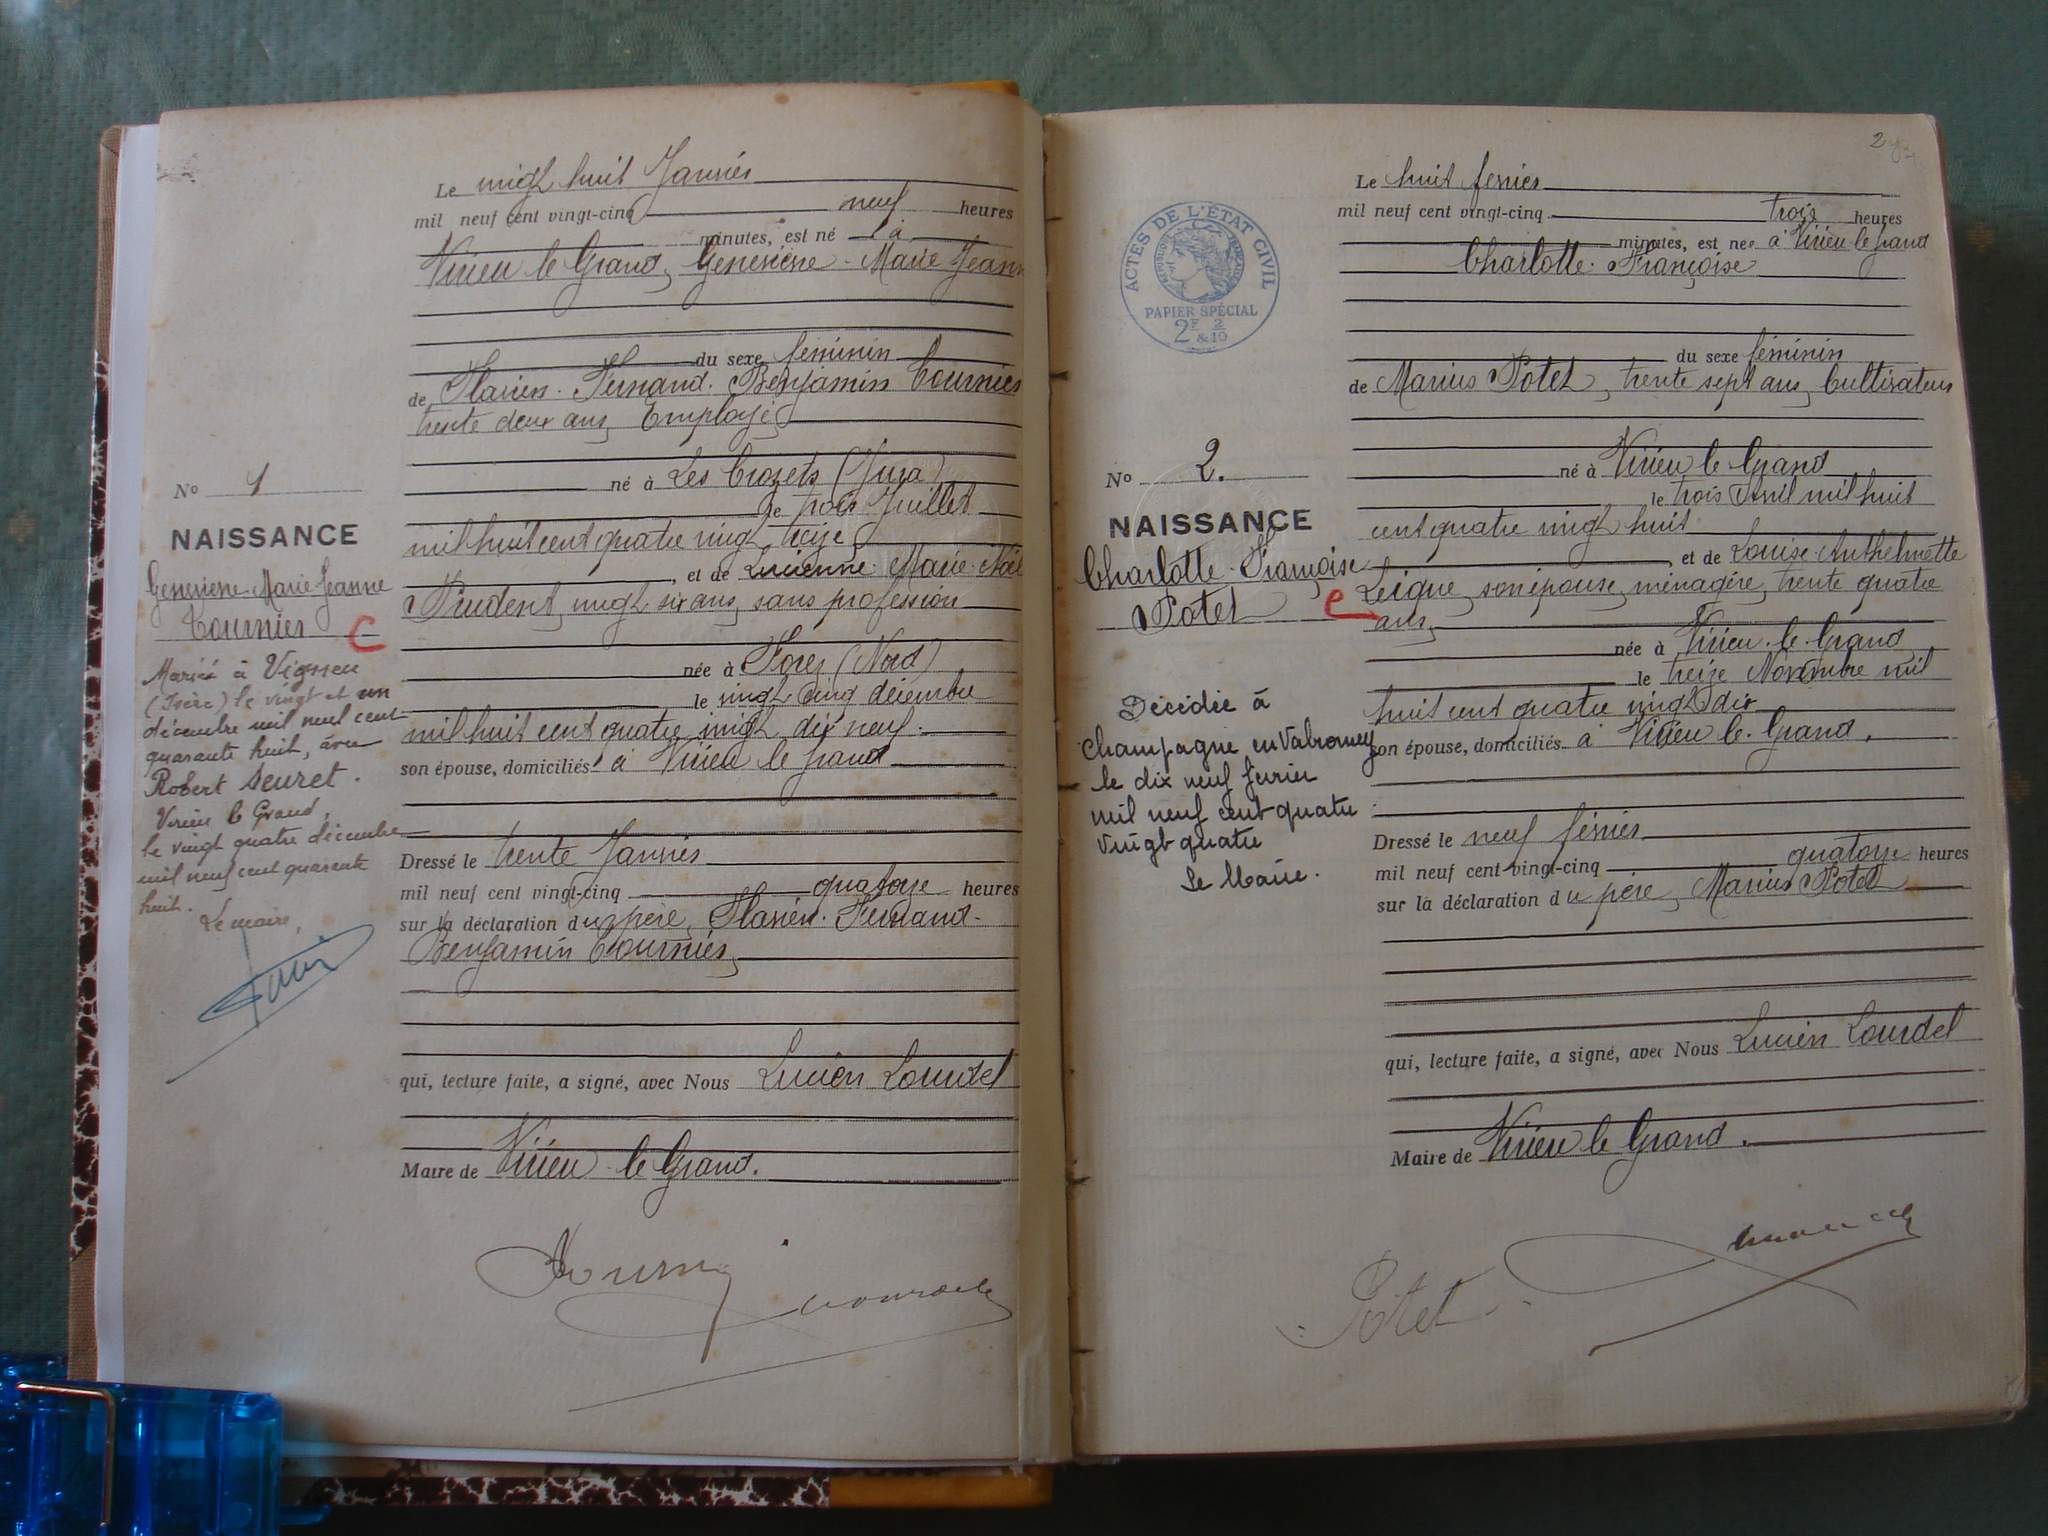 Le vingt huit Janvier
mil neuf cent vingt-cinq neuf heures
minutes, est né à
Virieu le Grand, Geneviève-Marie Jeanne
du sexe féminin
de Flavien-Fernand-Benjamin Tournier
trente deux ans, Employé,
né à Les Crozets (Jura)
le trois Juillet
mil huit cent quatre vingt treize
, et de Lucienne-Marie-Noël
Prudent, vingt six ans, sans profession
née à Forez (Nord)
le vingt cinq décembre
mil huit cent quatre vingt dix neuf.
son épouse, domiciliés à Virieu le grand
Dressé le trente Janvier
mil neuf cent vingt-cinq quatorze heures
sur la déclaration du père, Flavien-Fernand-
Benjamin Tournier,
qui, lecture faite, a signé, avec Nous Lucien Lourdel
Maire de Virieu-le Grand.
No 1
NAISSANCE
Geneviève-Marie-Jeanne
Tournier C
Mariée à Vignieu
(Isère) le vingt et un
décembre mil neuf cent
quarante huit, avec
Robert Seuret.
Virieu le Grand,
le vingt quatre décembre
mil neuf cent quarante
huit.
Le maire,
2
Le huit février
mil neuf cent vingt-cinq trois heures
minutes, est née à Virieu-le grand
Charlotte-Françoise
du sexe féminin
de Marius Potet, trente sept ans, Cultivateur
né à Virieu le Grand
le trois Avril mil huit
cent quatre vingt huit
, et de Louise-Anthelmette
Leique, son épouse, ménagère, trente quatre
ans,
née à Virieu-le-Grand
le treize Novembre mil
huit cent quatre vingt dix
son épouse, domiciliés à Virieu le-Grand.
Dressé le neuf février
mil neuf cent vingt-cinq quatorze heures
sur la déclaration du père, Marius Potet
qui, lecture faite, a signé, avec Nous Lucien Lourdel
Maire de Virieu le Grand.
Potet
ACTES DE L'ÉTAT CIVIL
RÉPUBLIQUE FRANÇAISE
PAPIER SPÉCIAL
2F 2
&10
No 2.
NAISSANCE
Charlotte-Françoise
Potet e
Décédée à
Champagne en Valromey
le dix neuf février
mil neuf cent quatre
vingt quatre
Le Maire.